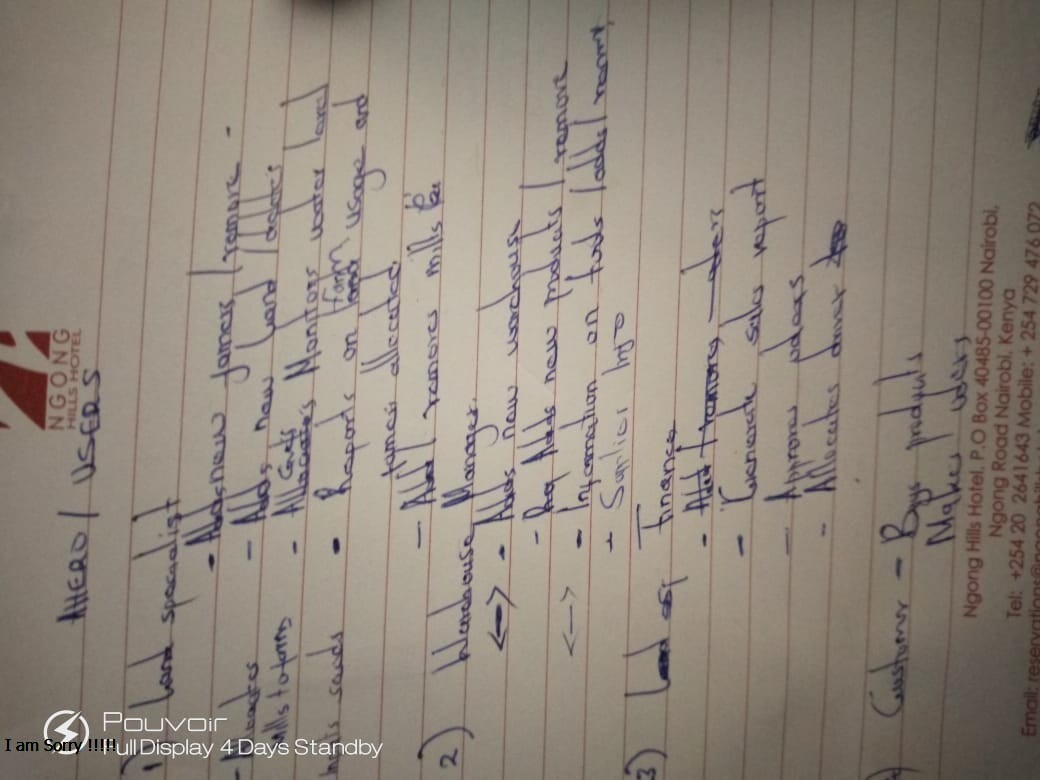 NGONG
HILLS HOTEL
AHERO / USERS
1) Land specialist
- Adds new farmers / remove -
- Adds new land / deletes
- Allocates Monitors water level
Gives
- Reports on land usage and
farm
farmer allocated.
- Add / remove mills
mills to farms
seeds
2) Warehouse Manager.
<-> - Adds new warehouse
- Adds new products / remove
<-> - Information on / adds / remove
+ Supplier info
3) Finance
- Generate sales report
- Approve orders
- Allocates driver
Customer - Buys products
Makes orders
Ngong Hills Hotel, P.O Box 40485-00100 Nairobi,
Ngong Road Nairobi, Kenya
Tel: +254 20 2641643 Mobile: + 254 729 476 072
Email: reservations@
Pouvoir
Full Display 4 Days Standby
I am Sorry !!!!!